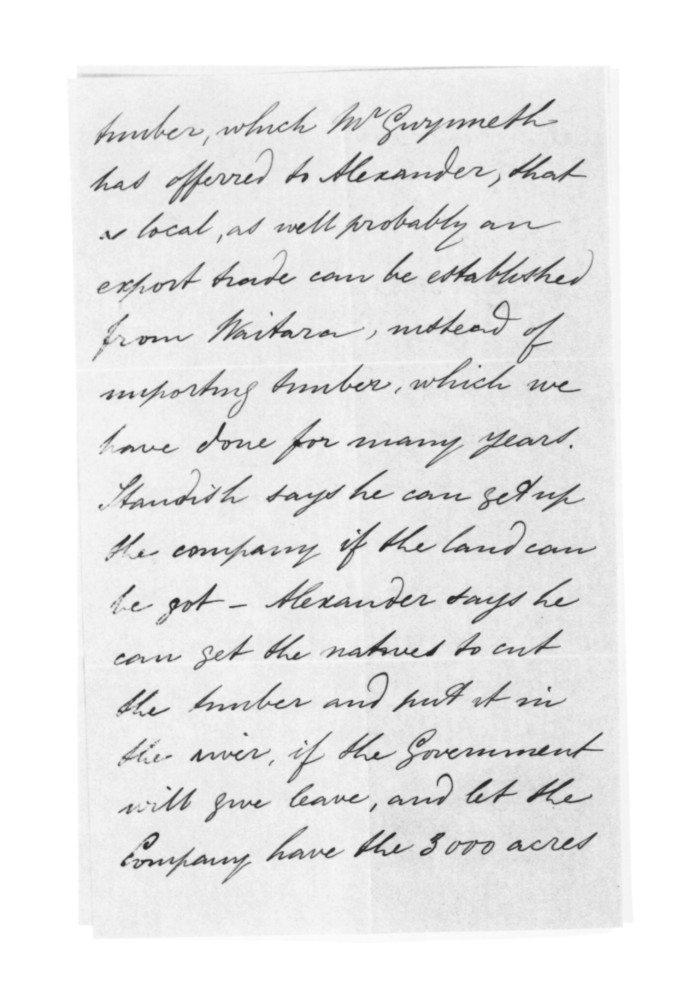 timber, which Mr Gwynneth
has offerred to Alexander, that
a local, as well probably an
export trade can be established
from Waitara, instead of
importing timber, which we
have done for many years.
Standish says he can get up
the company if the land can
be got – Alexander says he
can get the natives to cut
the timber and put it in
the river, if the Government
will give leave, and let the
Company have the 3000 acres